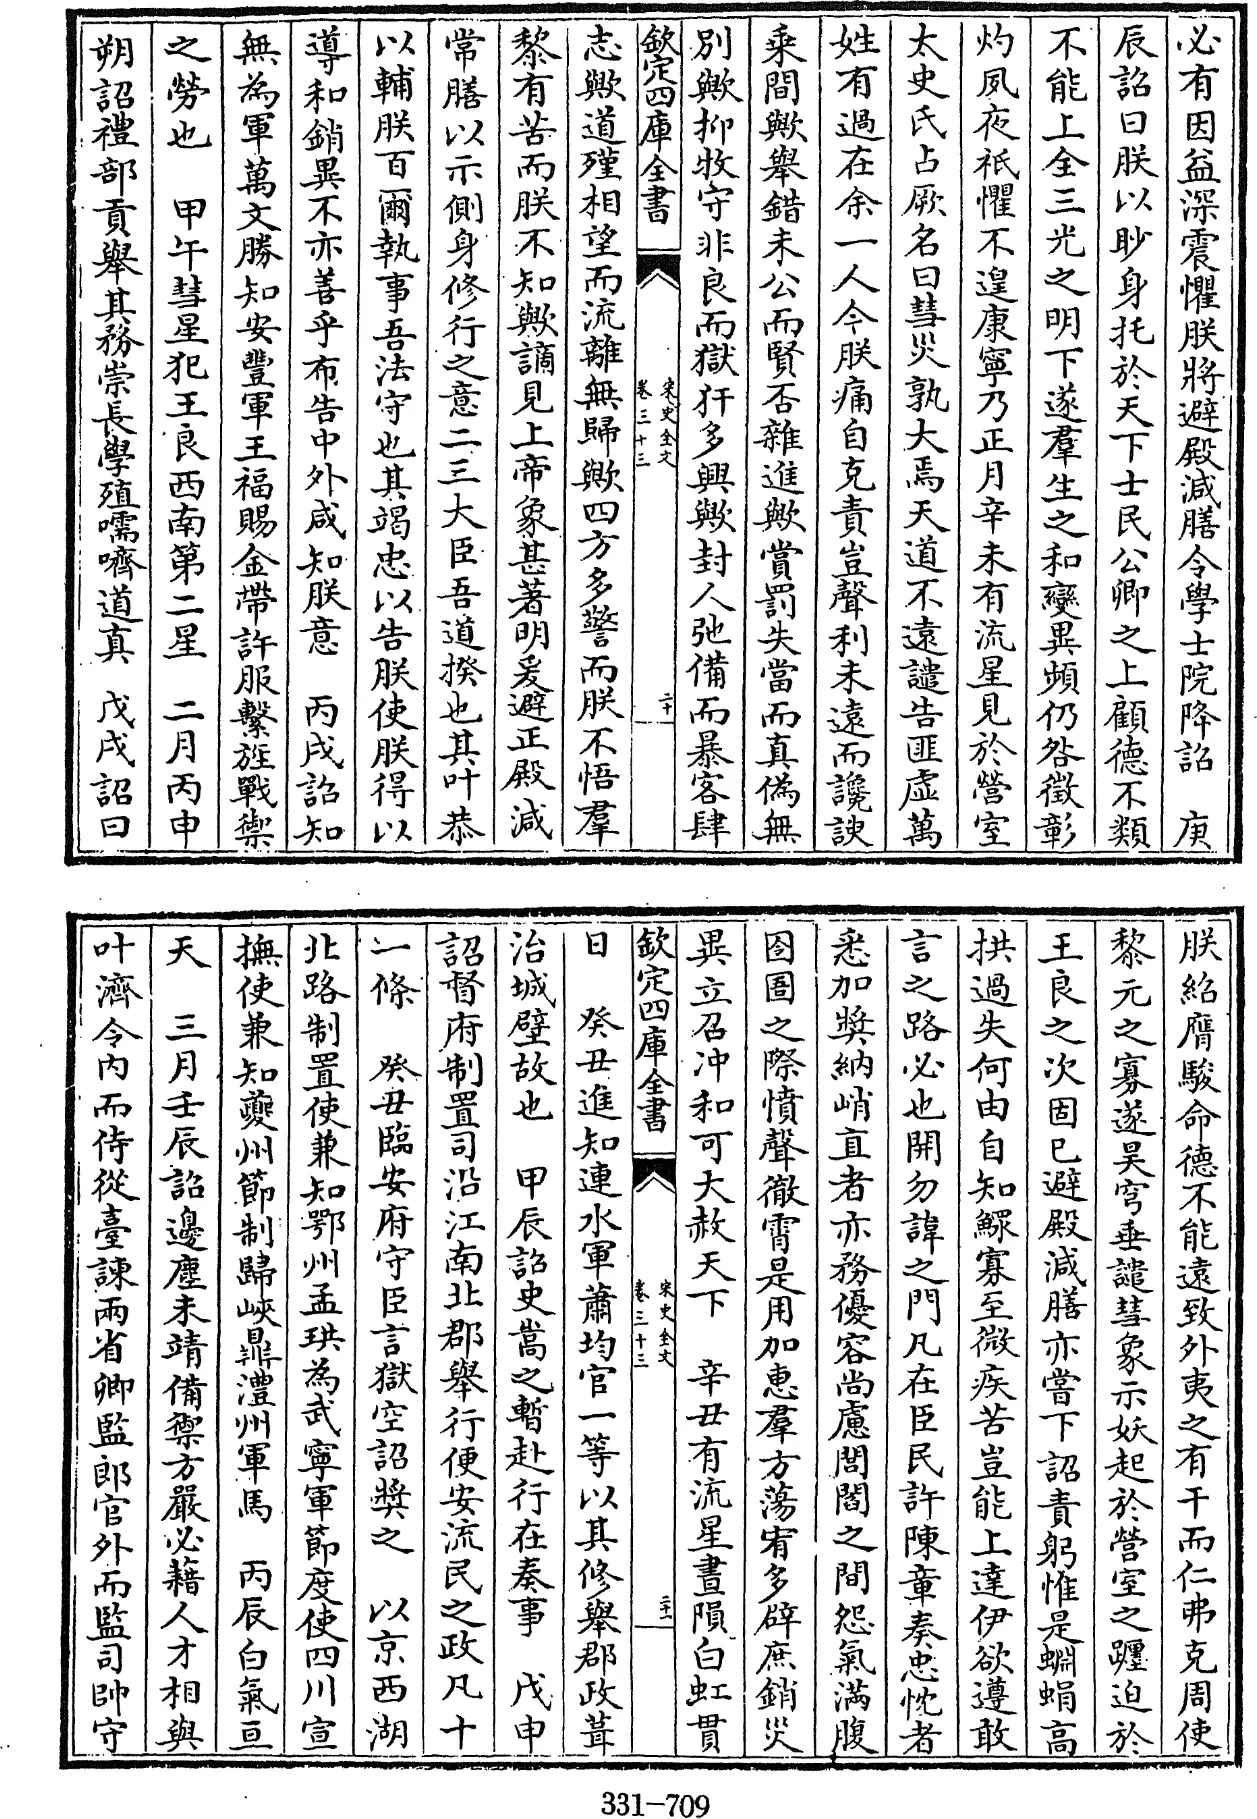 必有因益深震懼朕將避殿減膳令學士院降詔　庚
辰詔曰朕以眇身托於天下士民公卿之上顧德不類
不能上全三光之明下遂羣生之和變異頻仍咎徵彰
灼夙夜祇懼不遑康寧乃正月辛未有流星見於營室
太史氏占厥名曰彗災孰大焉天道不遠譴告匪虛萬
姓有過在余一人今朕痛自克責豈聲利未遠而讒諛
乘間歟舉錯未公而賢否雜進歟賞罰失當而真偽無
別歟抑牧守非良而獄犴多興歟封人弛備而暴客肆
欽定四庫全書
宋史全文
卷三十三
二十
志歟道殣相望而流離無歸歟四方多警而朕不悟羣
黎有苦而朕不知歟謫見上帝象甚著明爰避正殿減
常膳以示側身修行之意二三大臣吾道揆也其叶恭
以輔朕百爾執事吾法守也其竭忠以告朕使朕得以
導和銷異不亦善乎布告中外咸知朕意　丙戌詔知
無為軍萬文勝知安豐軍王福賜金帶許服繫旌戰禦
之勞也　甲午彗星犯王良西南第二星　二月丙申
朔詔禮部貢舉其務崇長學殖嚅嚌道真　戊戌詔曰
朕紹膺駿命德不能遠致外夷之有干而仁弗克周使
黎元之寡遂昊穹垂譴彗象示妖起於營室之躔迫於
王良之次固已避殿減膳亦嘗下詔責躬惟是蜵蜎高
拱過失何由自知鰥寡至微疾苦豈能上達伊欲遵敢
言之路必也開勿諱之門凡在臣民許陳章奏忠忱者
悉加獎納峭直者亦務優容尚慮閭閻之間怨氣滿腹
囹圄之際憤聲徹霄是用加惠羣方蕩宥多辟庶銷災
異立召沖和可大赦天下　辛丑有流星晝隕白虹貫
欽定四庫全書
宋史全文
卷三十三
二十一
日　癸丑進知連水軍蕭均官一等以其修舉郡政葺
治城壁故也　甲辰詔史嵩之暫赴行在奏事　戊申
詔督府制置司沿江南北郡舉行便安流民之政凡十
一條　癸丑臨安府守臣言獄空詔獎之　以京西湖
北路制置使兼知鄂州孟珙為武寧軍節度使四川宣
撫使兼知夔州節制歸峽鼎澧州軍馬　丙辰白氣亘
天　三月壬辰詔邊塵未靖備禦方嚴必藉人才相與
叶濟令内而侍從臺諫兩省卿監郎官外而監司帥守
331-709